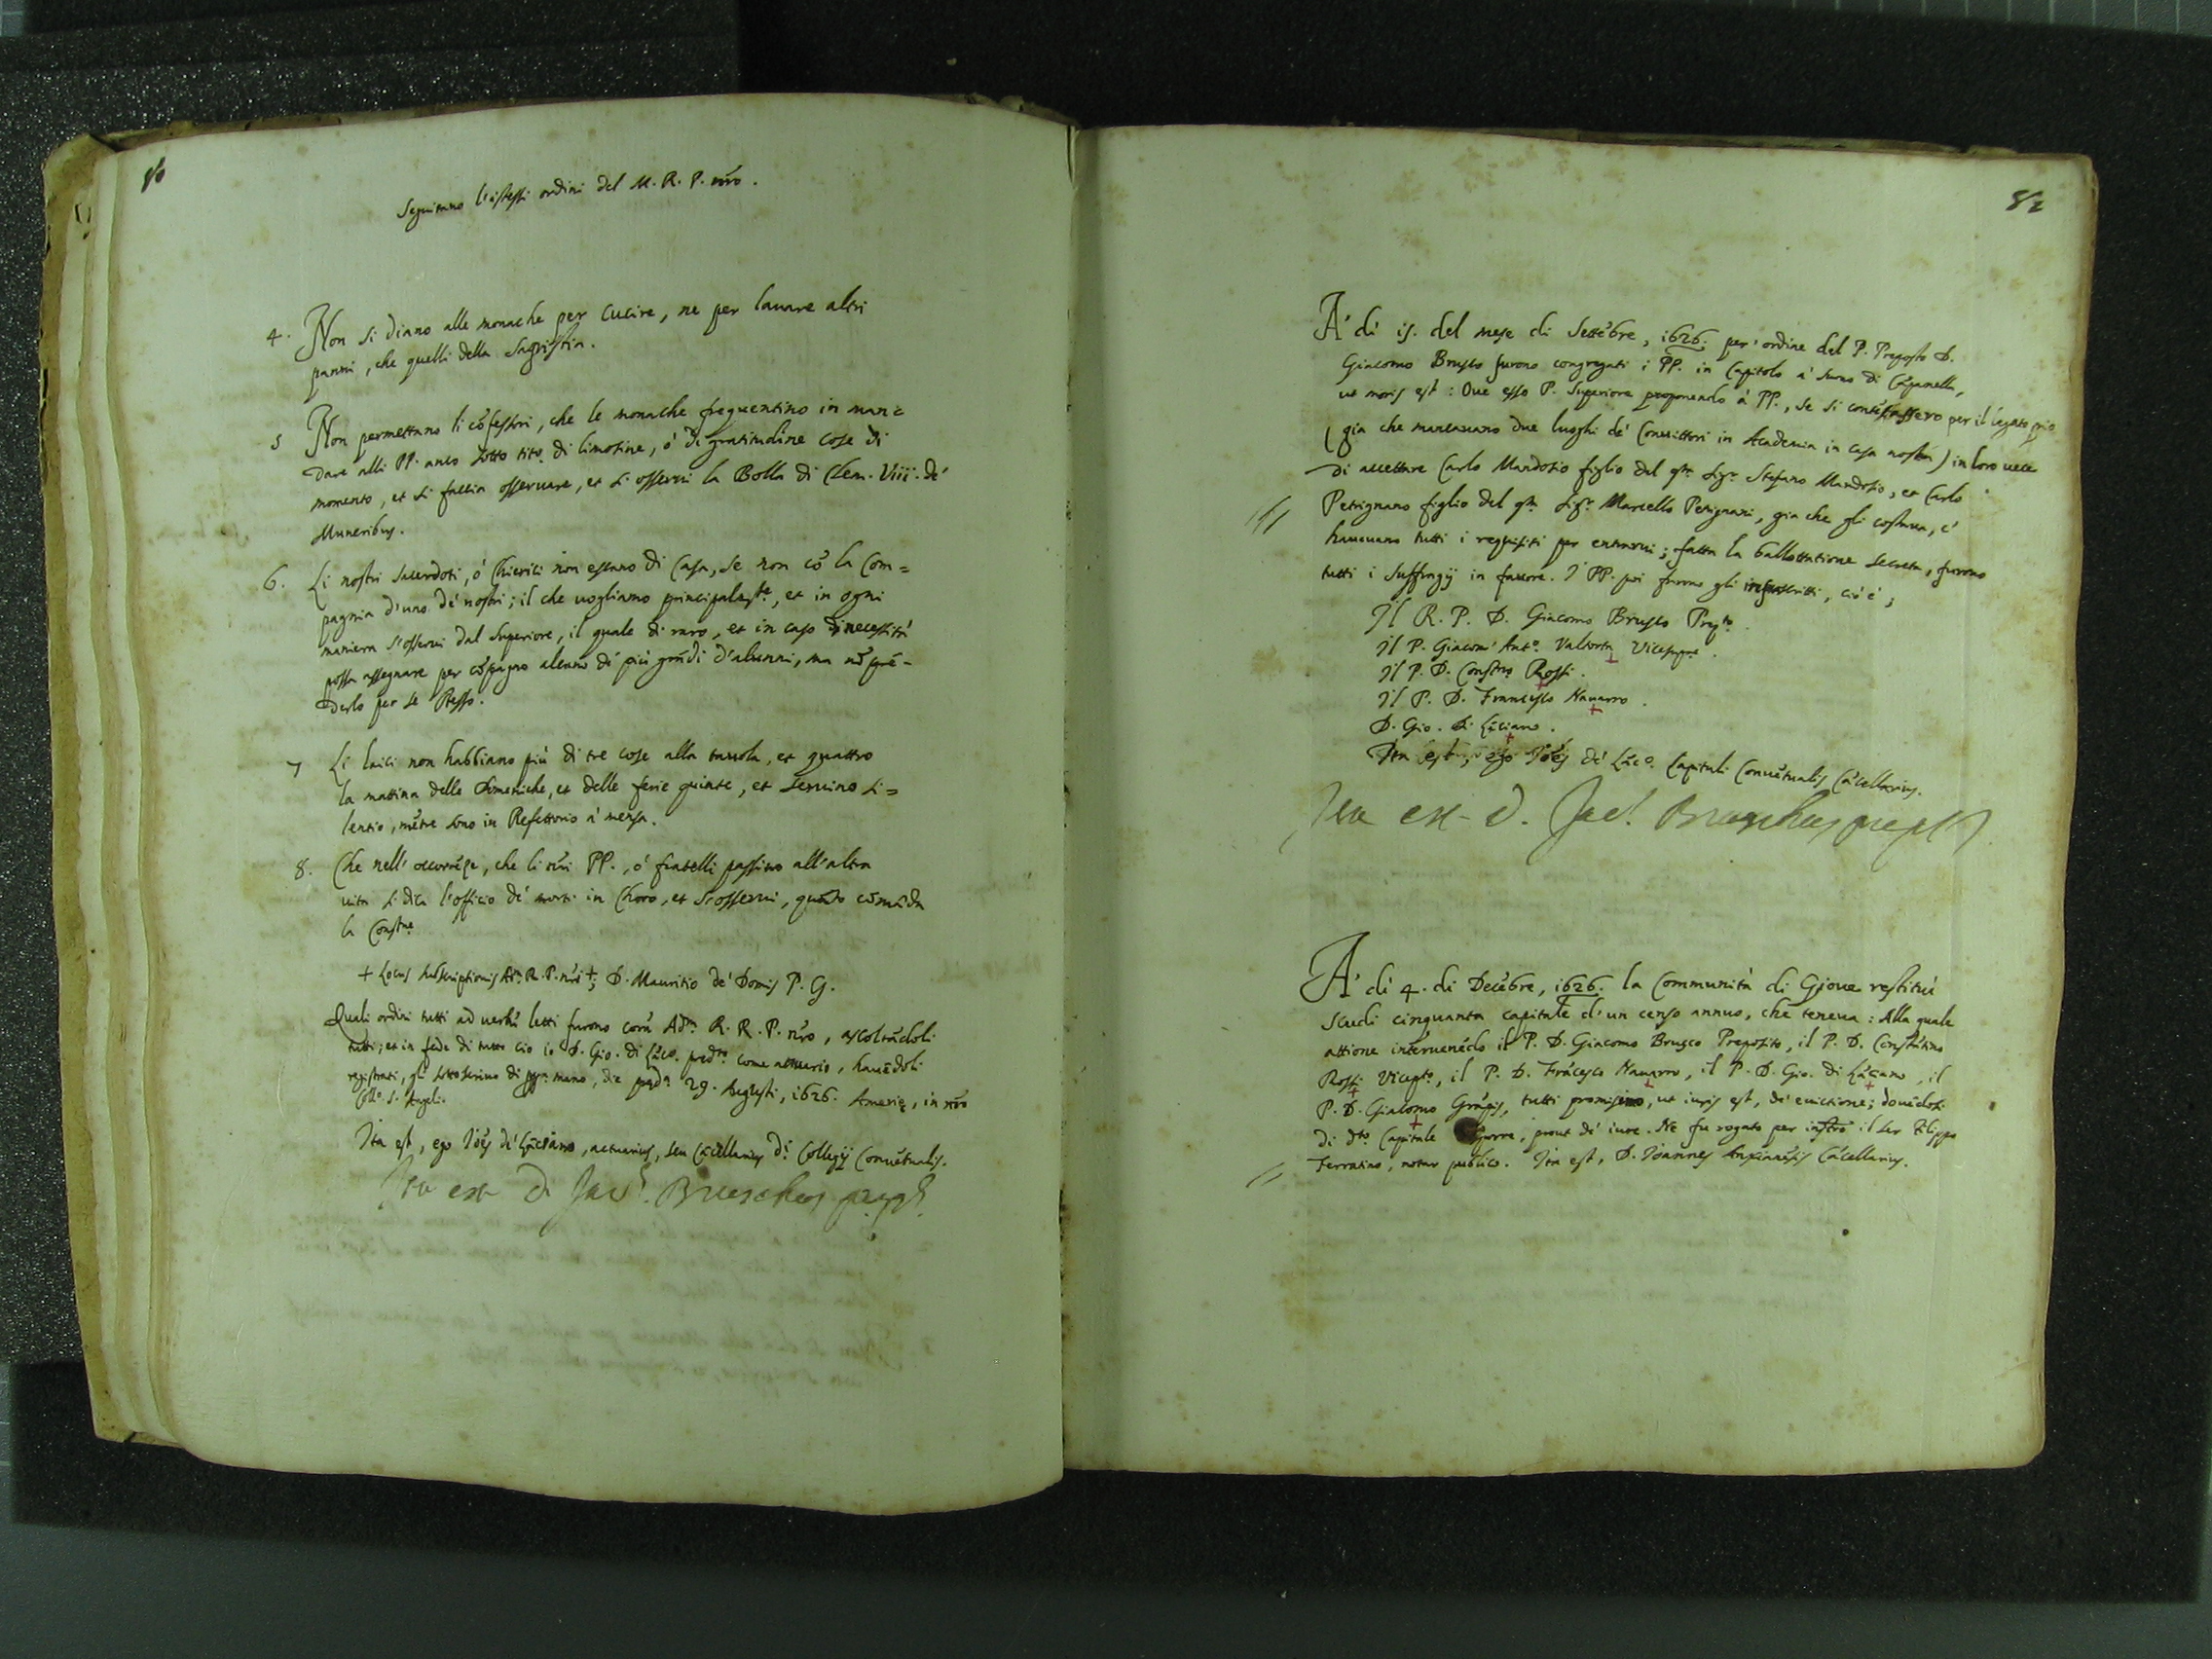 80
Seguitano l'istessi ordini del M. R. P. nr̃o.
4. Non si diano alle monache per cucire, ne per lauare altri
panni, che quelli della Sagristia.
5 Non permettano li cõfessori, che le monache frequentino in
dare alli PP. anco sotto titº di limosine, ó di gratitudine cose di
momento, et si faccia osseruare, et si osserui la Bolla di Clem. Viii. dé
Muneribus.
6. Li nostri sacerdoti, ó Chierici non escano di Casa, se non cõ la Com=
pagnia d'uno dé nostri; il che uogliamo principalmte, et in ogni
maniera s'osserui dal Superiore, il quale di raro, et in caso di necessità
possa assegnare per cõpagno alcuno dé più grãdi d'alunni, ma nõ prẽ-
derlo per se stesso.
7 Li laici non habbiano più di tre cose alla tauola, et quattro
la mattina delle Domeniche, et delle ferie quinte, et seruino si=
lentio, mẽtre sono in Refettorio à mensa.
8. Che nell' occorrẽze, che li nr̃i PP., ó fratelli passino all'altra
uita si dica l'officio dé morti in Choro, et s'osserui, quãto comãda
la Constne
+ Locus subscriptionis Adm R. P. nr̃i +; D. Mauritio dé Domis P. G.
Quali ordini tutti ad uerbũ letti furono corã Adm R. R. P. nr̃o, ascoltãdoli
tutti; et in fede di tutto cio io D. Gio. di Lãcº predto come attuario, hauẽdoli
registrati, gli sottoscriuo di ppa mano, die predª 29. Augusti, 1626. Amerię, in nr̃o
Collº S. Angeli.
Ita est, ego Joẽs dé Lãciano, actuarius, seu Cãcellarius di Collegij Conuẽtualis.
Ita est D. Jacs Bruschus prepts
82
A' dì 15. del mese di Settẽbre, 1626. per ordine del P. Preposto D.
Giacomo Brusco furono congregati i PP. in Capitolo à suono di Cãpanella,
ut moris est: Oue esso P. Superiore proponendo à PP., se si contẽtassero per il legato pio
(gia che mancauano due luoghi dé Conuittori in Academia in casa nostra) in loro uece
di accettare Carlo Mandosio figlio del qm Sigr Stefano Mandosio, et Carlo
Petrignano figlio del qm Sigr Marcello Petrignani, gia che gli costaua, c'
haueuano tutti i requisiti per entrarui; fatta la ballottatione secreta, furono
tutti i suffragij in fauore. I PP. poi furono gli infrascritti, cio é;
Il R. P. D. Giacomo Brusco Prepto.
Il P. Giacom' Antº. Valtorta Viceprepto.
Il P. D. Constno Rossi.
Il P. D. Francesco Nauarro.
D. Gio. di Lãciano.
Ita est, ego Joẽs dé Lãcº. Capituli Conuẽtualis Cãcellarius.
Ita est D. Jacs. Bruschus prepts
A' dì 4. di Decẽbre, 1626. la Communità di Gioue restituì
scudi cinquanta capitale d'un censo annuo, che teneua: Alla quale
attione interuenẽdo il P. D. Giacomo Brusco Preposito, il P. D. Constãtino
Rossi Vicepto, il P. D. Frãcesco Nauarro, il P. D. Gio. di Lãciano, il
P. D. Giacomo Grãpis, tutti promisero, ut iuris est, dé euictione; douẽdosi
di dto Capitale, prout dé iure. Ne fu rogato per instrº il ser Filippo
Ferratino, notar publico. Ita est, D. Joannes Anxianẽsis Cãcellarius.